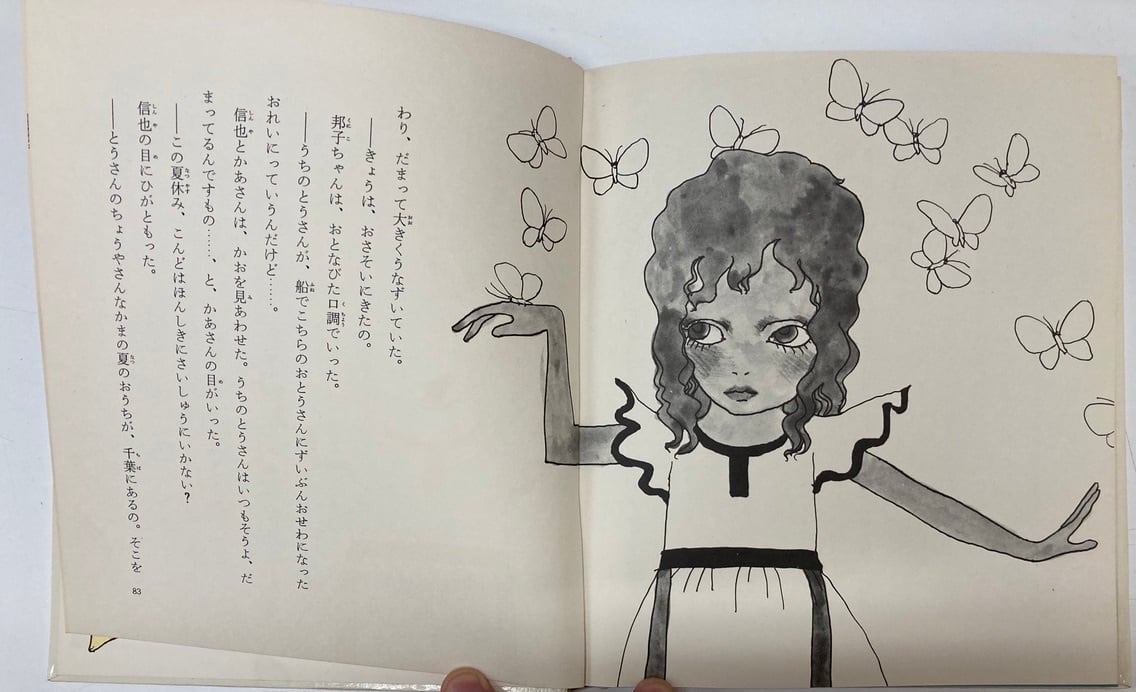 わり、だまって大きくうなずいていた。
――きょうは、おさそいにきたの。
邦子ちゃんは、おとなびた口調でいった。
――うちのとうさんが、船でこちらのおとうさんにずいぶんおせわになった
おれいにっていうんだけど……。
信也とかあさんは、かおを見あわせた。うちのとうさんはいつもそうよ、だ
まってるんですもの……、と、かあさんの目がいった。
――この夏休み、こんどはほんしきにさいしゅうにいかない?
信也の目にひがともった。
――とうさんのちょうやさんなかまの夏のおうちが、千葉にあるの。そこを
83